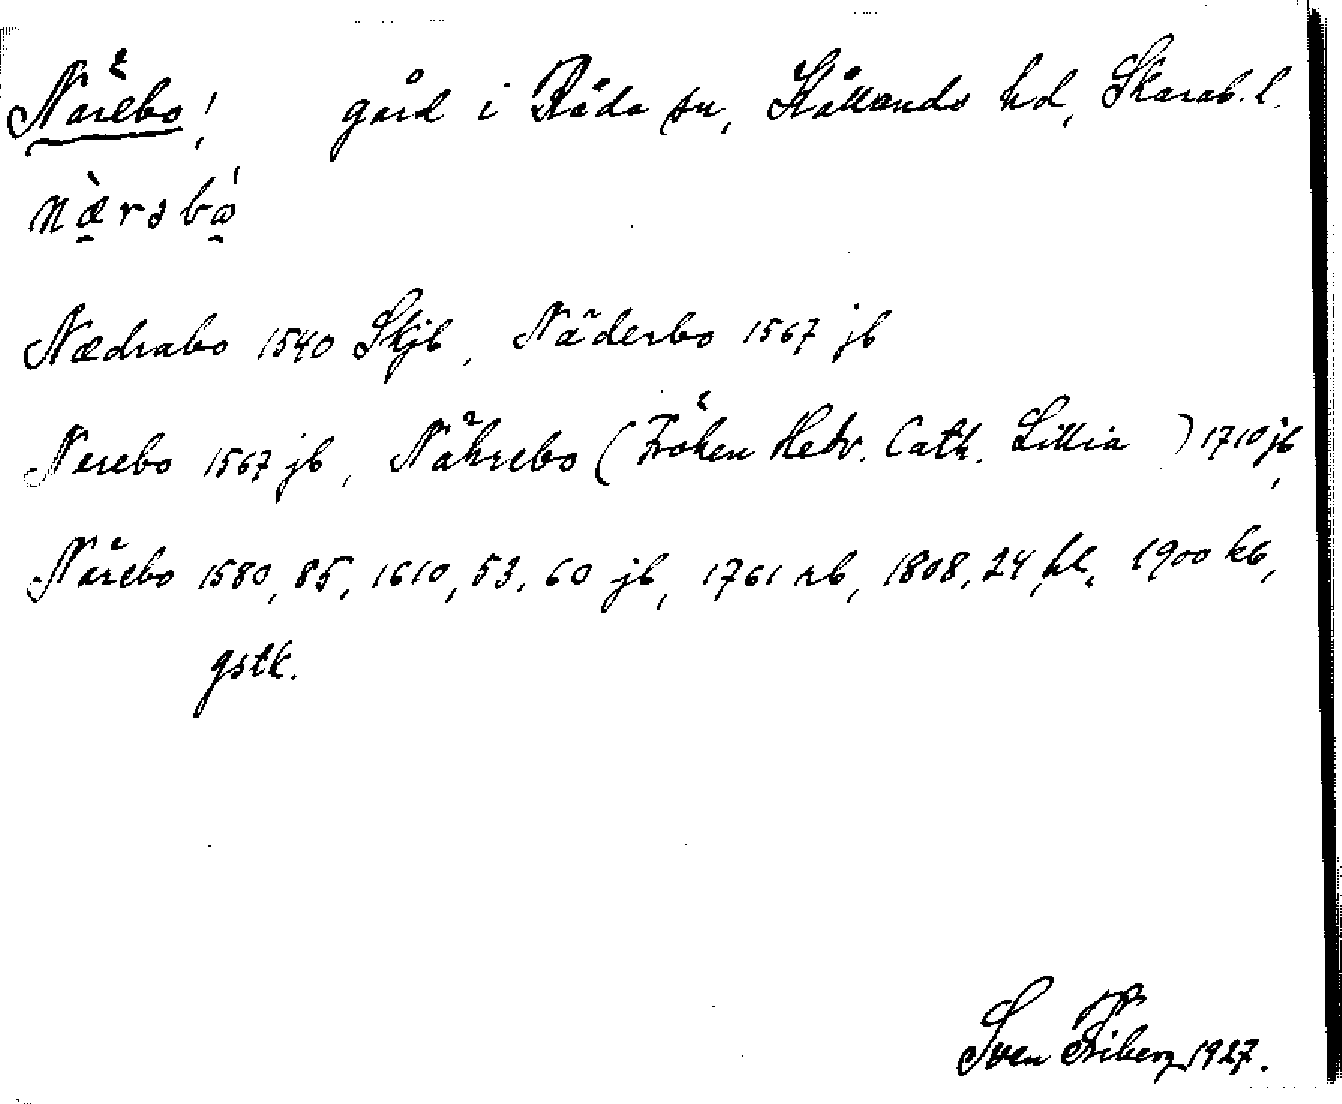 Närebo! gård i Råda sn, Kållands hd, Skarab. l.
næ̀rəbó
Nædrabo 1540 Skjb, Näderbo 1567 jb
Nerebo 1567 jb, Nährebo (Fröken Hedv. Cath. Lillia ) 1710 jb,
Närebo 1580, 85, 1610, 53, 60 jb, 1761 rb, 1808, 24 hl, 1900 kb,
gstk.
Sven Friberg 1927.